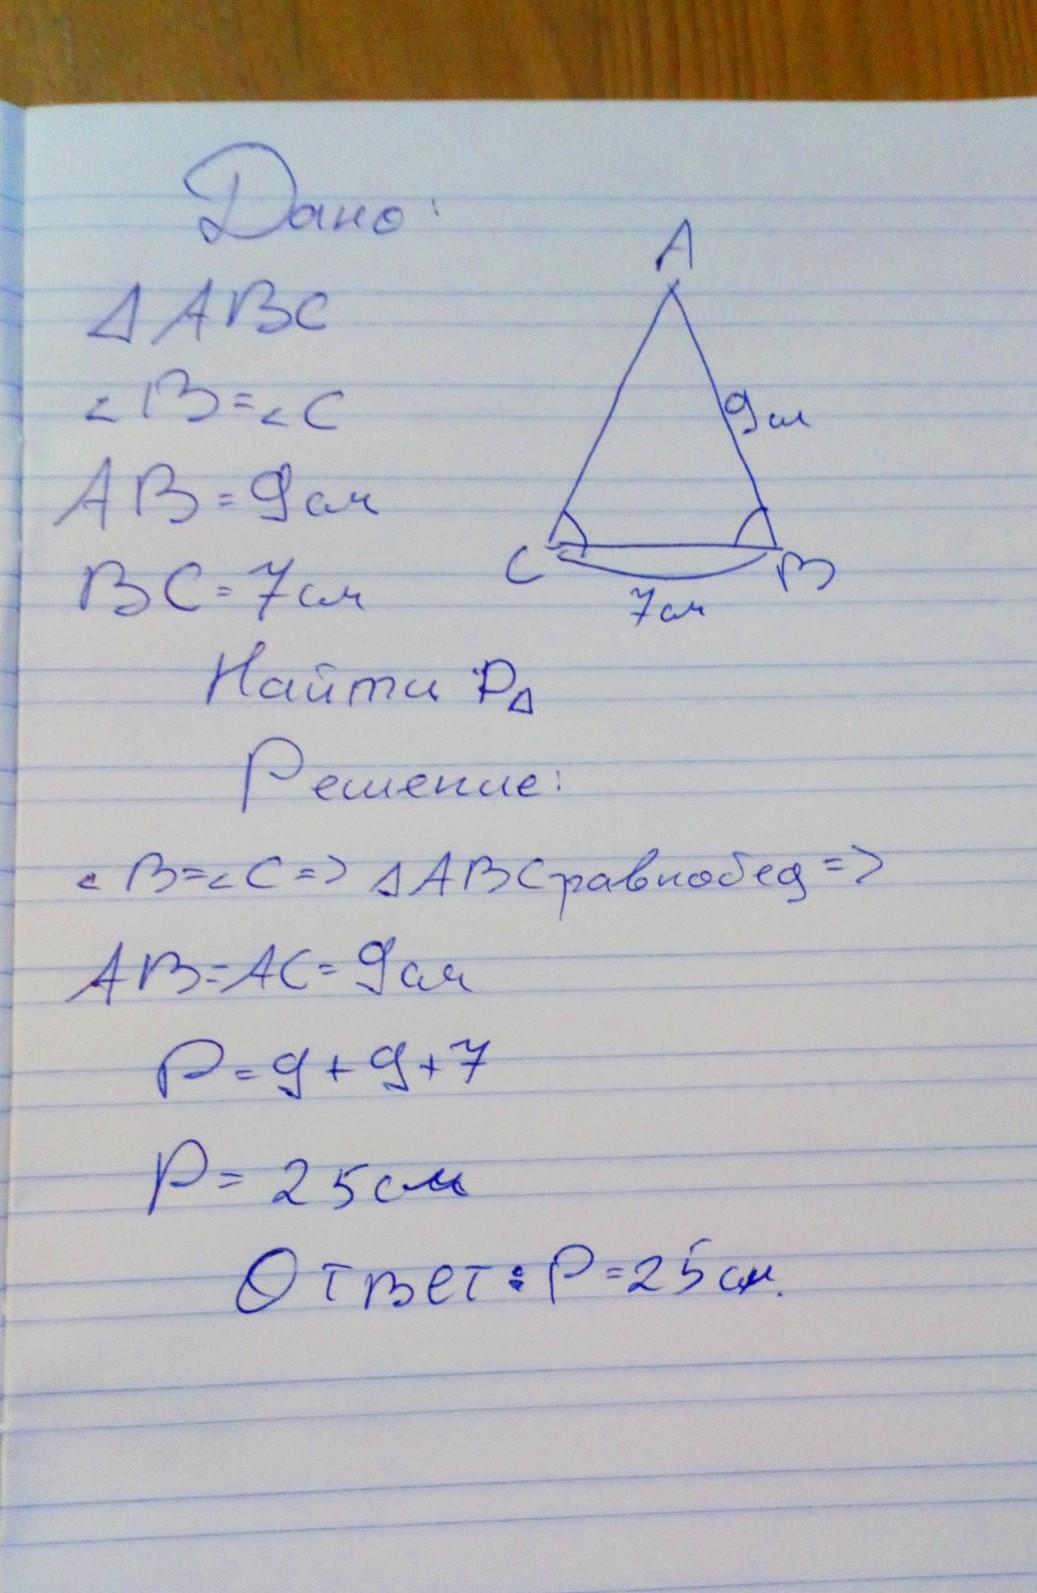 Дано:
△ABC
∠B=∠C
AB=9см
BC=7см
A
9см
C
B
7см
Найти P△
Решение:
∠B=∠C=> △ABC равнобед=>
AB=AC=9см
P=9+9+7
P=25см
Ответ: P=25см.